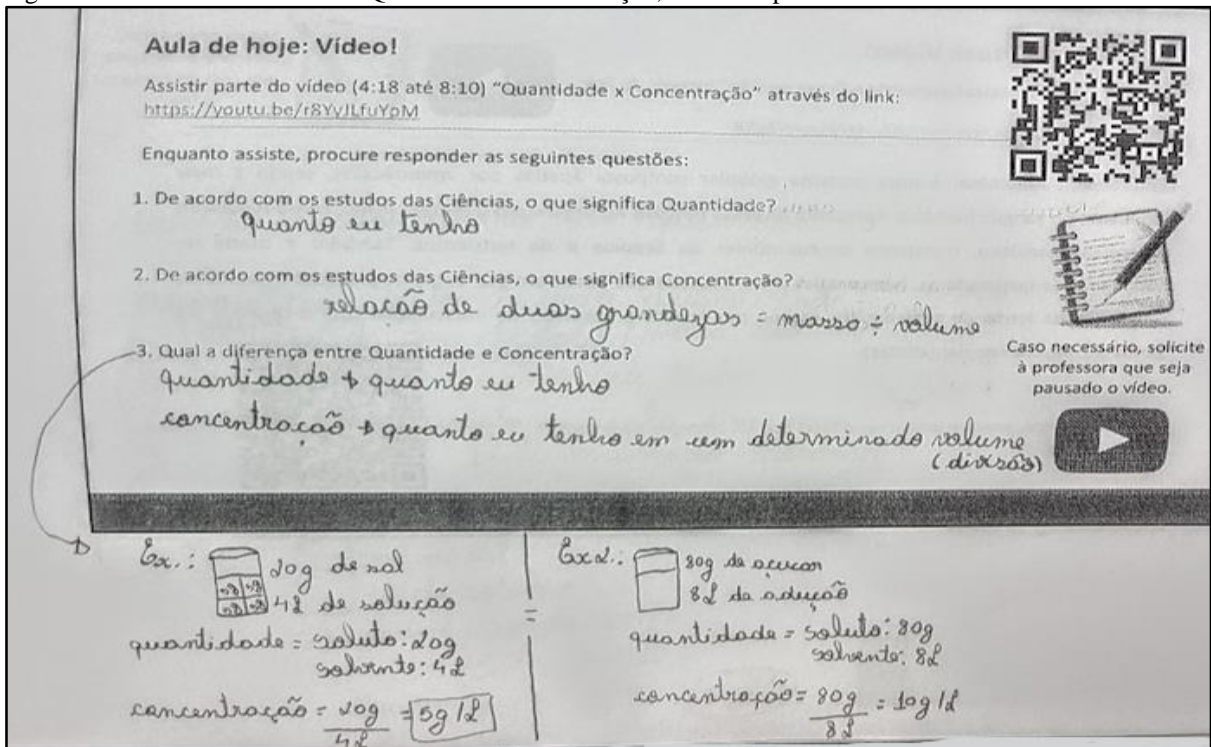 Aula de hoje: Vídeo!
Assistir parte do vídeo (4:18 até 8:10) "Quantidade x Concentração" através do link:
https://youtu.be/r8YyJLfuYpM
Enquanto assiste, procure responder as seguintes questões:
1. De acordo com os estudos das Ciências, o que significa Quantidade?
quanto eu tenho
2. De acordo com os estudos das Ciências, o que significa Concentração?
relação de duas grandezas = massa ÷ volume
3. Qual a diferença entre Quantidade e Concentração?
quantidade → quanto eu tenho
concentração → quanto eu tenho em um determinado volume
(divisão)
Caso necessário, solicite
à professora que seja
pausado o vídeo.
Ex.: 20g de sal
4L de solução
quantidade = soluto: 20g
solvente: 4L
concentração = 20g = 5g/L
4L
=
Ex2.: 80g de açucar
8L de solução
quantidade = soluto: 80g
solvente: 8L
concentração = 80g = 10g/L
8L